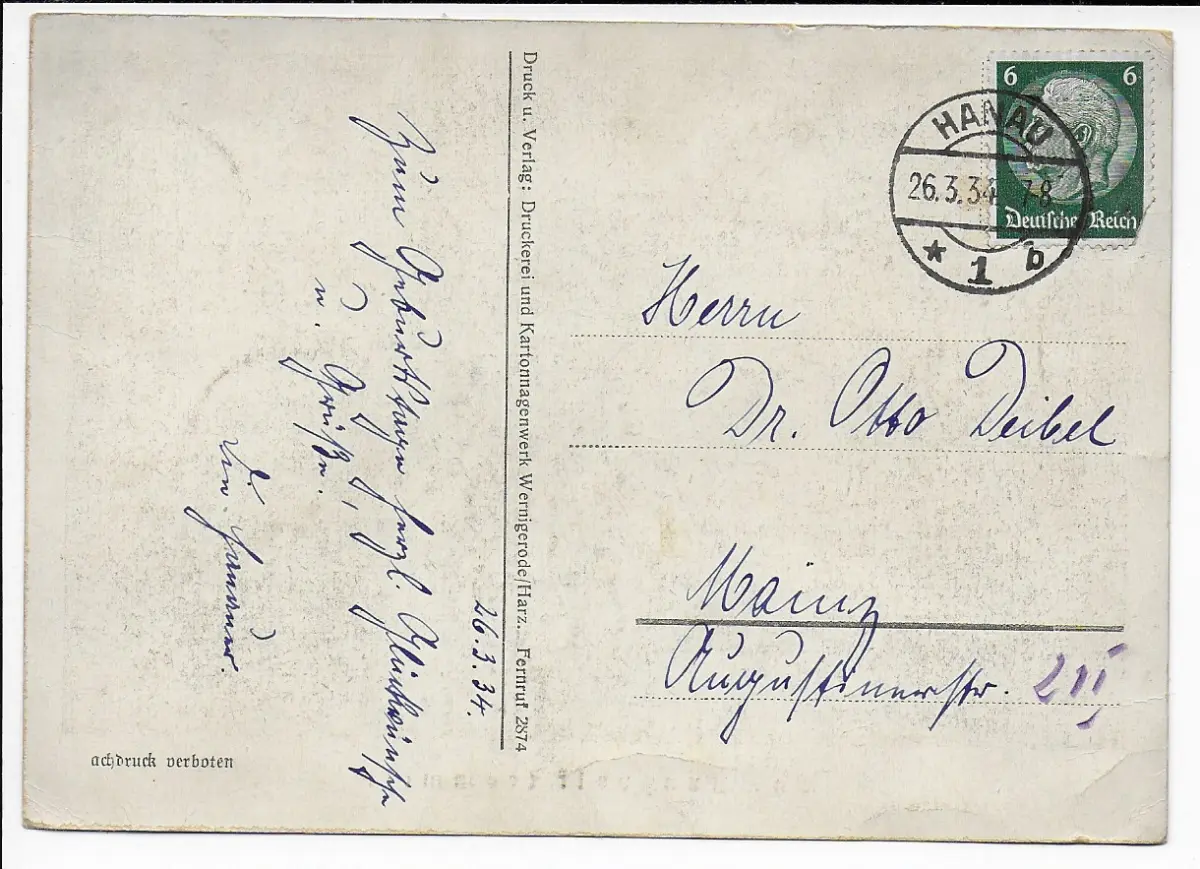 26.3.34.
Zum Geburtstage herzl. Glückwünsche
u. Grüße.
Die Hanauer.
Druck u. Verlag: Druckerei und Kartonnagenwerk Wernigerode/Harz. Fernruf 2874
achdruck verboten
6 6
Deutsches Reich
HANAU
26.3.34 7-8
* 1 b
Herrn
Dr. Otto Deibel
Mainz
Augustinerstr.